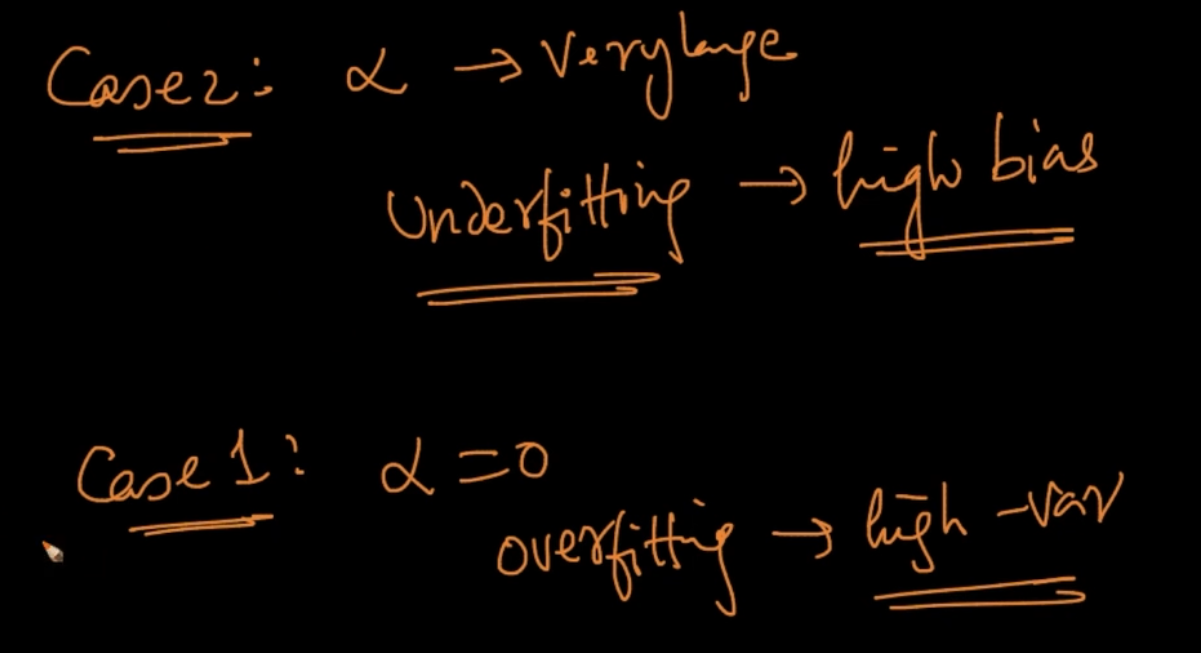 Case 2: α → Very large
Underfitting → high bias
Case 1: α = 0
overfitting → high-var